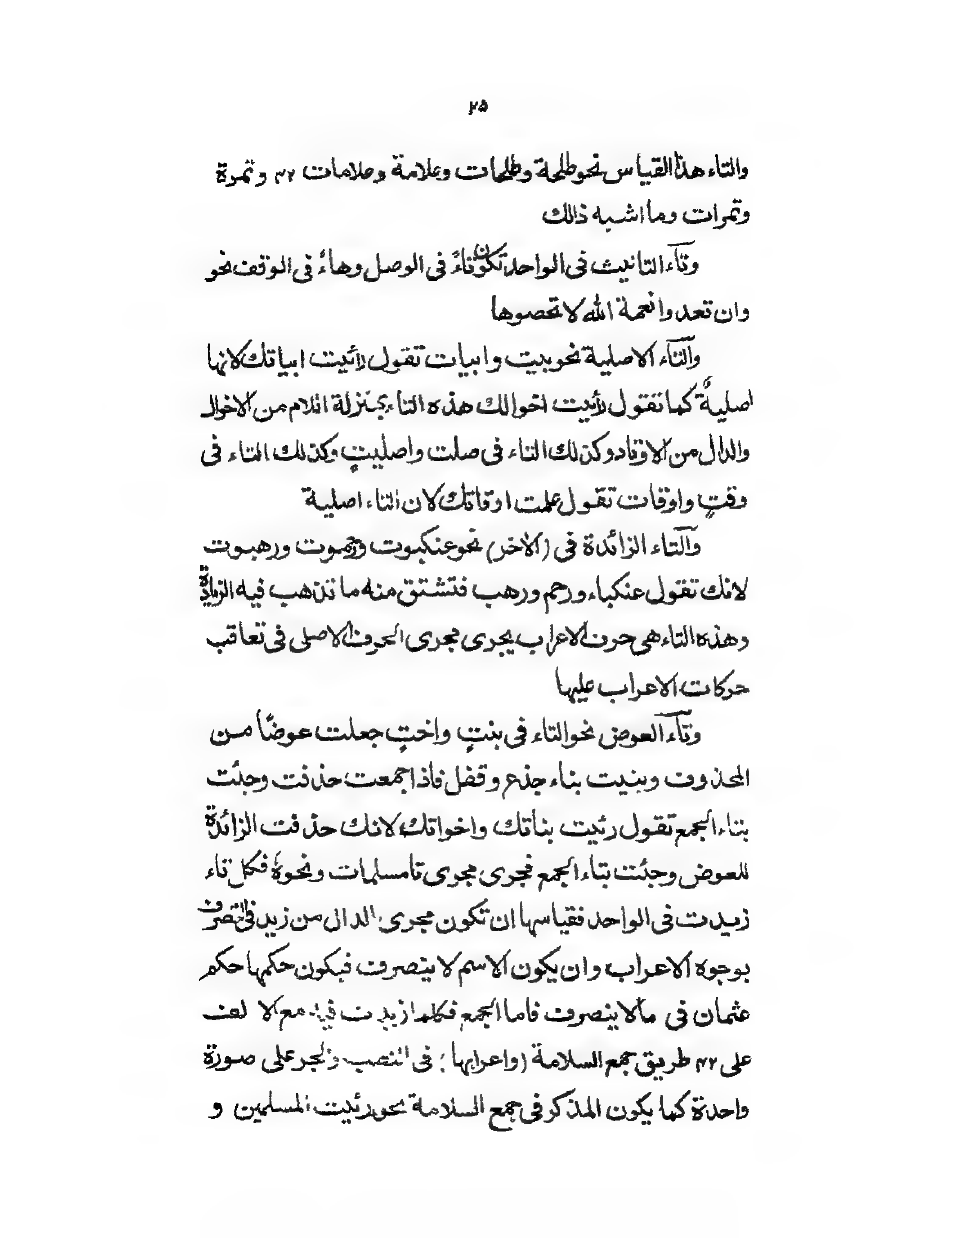 ۲۵
والتاء هذا القياس نحو طلحة وطلحات وعلامة وعلامات ۲۲ وتمرة
وتمرات وما اشبه ذالك
وتآء التانيث فى الواحد تكون تاءً فى الوصل وهاءً فى الوقف نحو
وان تعدوا نعمة الله لا تحصوها
والتآء الاصلية نحو بيت وابيات تقول رأيت ابياتك لانها
اصليةٌ كما تقول رأيت اخوالك هذه التاء بمنزلة اللام من الاخوال
والدال من الاوتاد وكذلك التاء فى صلت واصليتٍ وكذلك التاء فى
وقتٍ واوقات تقول علمت اوقاتك لان التاء اصلية
وآلتاء الزائدة فى (الاخر) نحو عنكبوت ورحموت ورهبوت
لانك تقول عنكباء ورحم ورهب فتشتق منه ما تذهب فيه الزيادة
وهذه التاء هى حرف الاعراب يجرى مجرى الحرف الاصلى فى تعاقب
حركات الاعراب عليها
وتآء العوض نحو التاء فى بنتٍ واختٍ جعلت عوضًا من
المحذوف وبنيت بناء جذع وقفل فاذا جمعت حذفت وجئت
بتاء الجمع تقول رئيت بناتك واخواتك لانك حذفت الزائدة
للعوض وجئت بتاء الجمع فجرى مجرى تا مسلمات ونحوه فكل تاء
زيدت فى الواحد فقياسها ان تكون مجرى الدال من زيد فى التصرف
بوجوه الاعراب وان يكون الاسم لا ينصرف فيكون حكمها حكم
عثمان فى مالا ينصرف فاما الجمع فكلما زيدت فيه مع الالف
على ۲۲ طريق جمع السلامة (واعرابها) فى النصب والجر على صورة
واحدة كما يكون المذكر فى جمع السلامة نحو رئيت المسلمين و